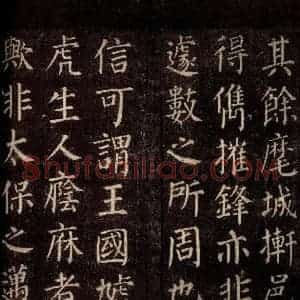 其餘麾城㨔邑
得儁摧鋒亦非
遽數之所周也
信可謂王國虓
虎生人廕庥者
歟非太保之邁
Shufaziliao.com